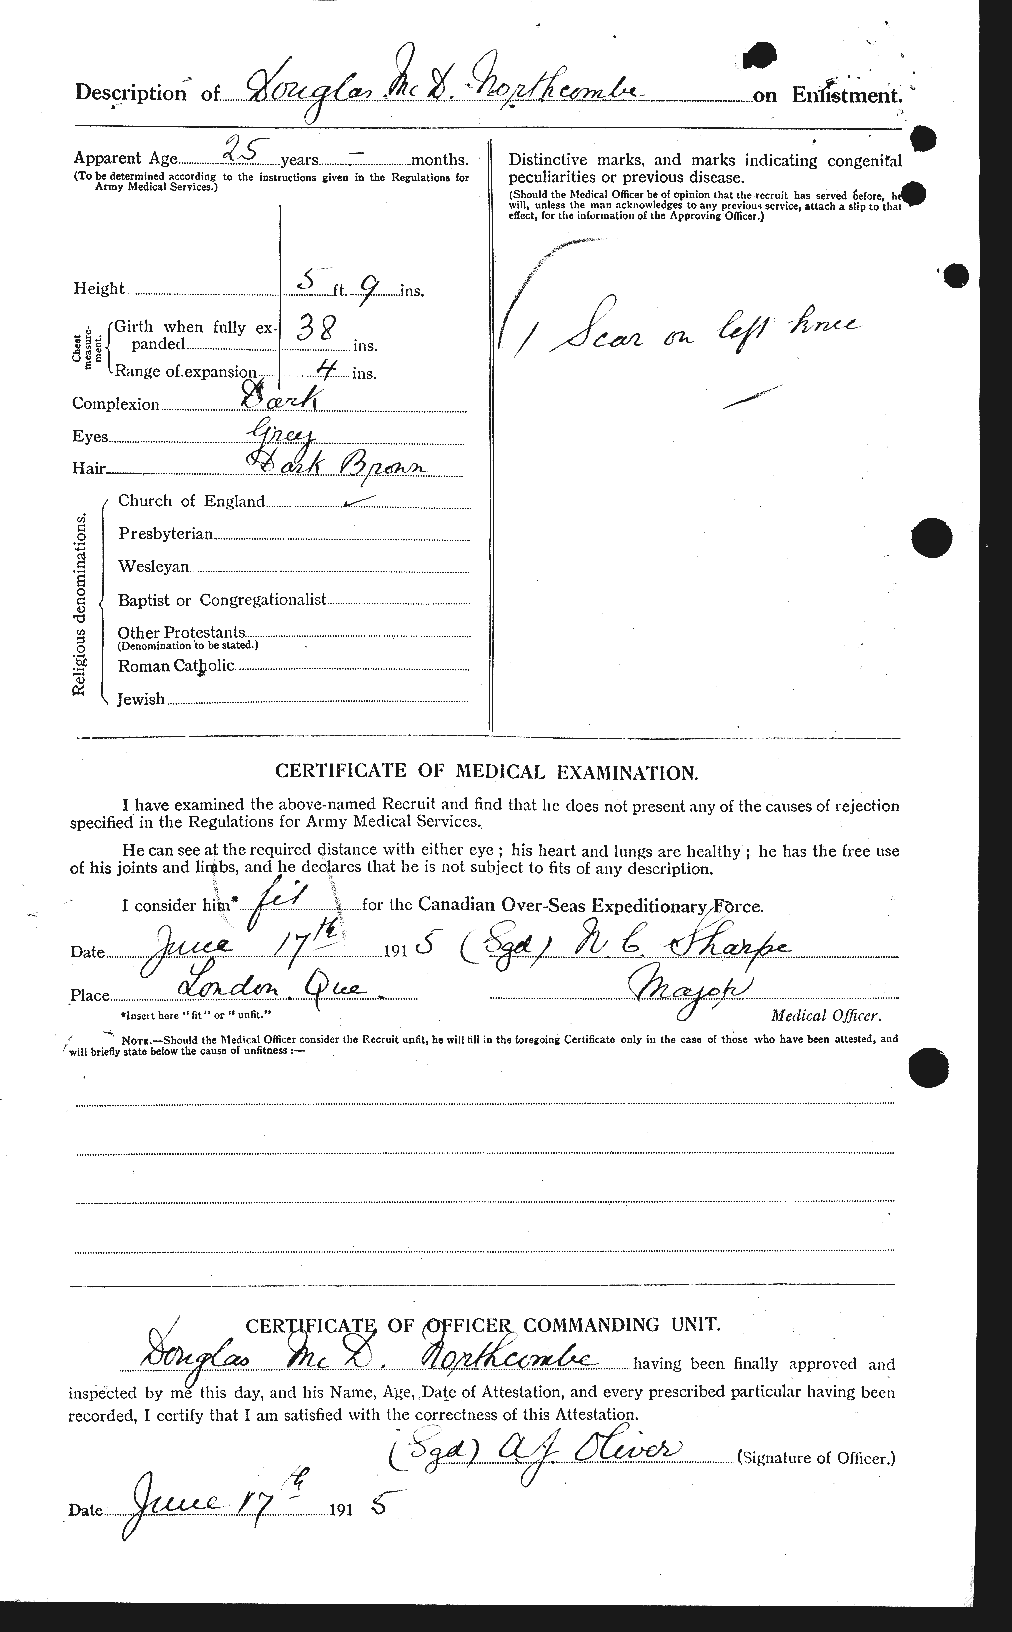 Description of Douglas Mc D. Northcombe on Enlistment.
Apparent Age 25 years – months.
(To be determined according to the instructions given in the Regulations for
Army Medical Services.)
Height 5 ft. 9 ins.
Chest measurement.
Girth when fully ex-
panded 38 ins.
Range of expansion 4 ins.
Complexion Dark
Eyes Grey
Hair Dark Brown
Religious denominations.
Church of England ✓
Presbyterian
Wesleyan
Baptist or Congregationalist
Other Protestants
(Denomination to be stated.)
Roman Catholic
Jewish
Distinctive marks, and marks indicating congenital
peculiarities or previous disease.
(Should the Medical Officer be of opinion that the recruit has served before, he
will, unless the man acknowledges to any previous service, attach a slip to that
effect, for the information of the Approving Officer.)
1 Scar on left knee
CERTIFICATE OF MEDICAL EXAMINATION.
I have examined the above-named Recruit and find that he does not present any of the causes of rejection
specified in the Regulations for Army Medical Services.
He can see at the required distance with either eye; his heart and lungs are healthy; he has the free use
of his joints and limbs, and he declares that he is not subject to fits of any description.
I consider him* fit for the Canadian Over-Seas Expeditionary Force.
Date June 17th 1915 (Sgd) N. C. Sharpe
Place London. Que. Major
*Insert here "fit" or "unfit." Medical Officer.
NOTE.—Should the Medical Officer consider the Recruit unfit, he will fill in the foregoing Certificate only in the case of those who have been attested, and
will briefly state below the cause of unfitness:—
CERTIFICATE OF OFFICER COMMANDING UNIT.
Douglas Mc D. Northcombe having been finally approved and
inspected by me this day, and his Name, Age, Date of Attestation, and every prescribed particular having been
recorded, I certify that I am satisfied with the correctness of this Attestation.
(Sgd) A J. Oliver (Signature of Officer.)
Date June 17th 1915